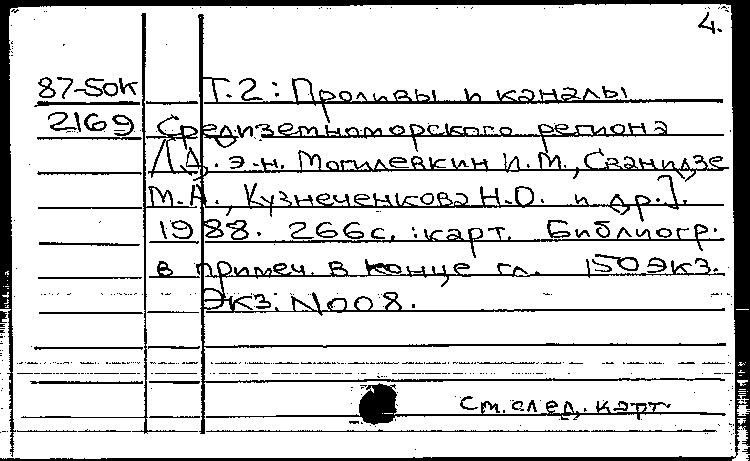 4.
87-50к Т.2: Проливы и каналы
2169 Средиземноморского региона
/Д. э.н. Могилевкин И.М., Сванидзе
М.А., Кузнеченкова Н.О. и др.].
1988. 266с. :карт. Библиогр.
в примеч. в конце гл. 150экз.
Экз. N008.
См. след. карт.